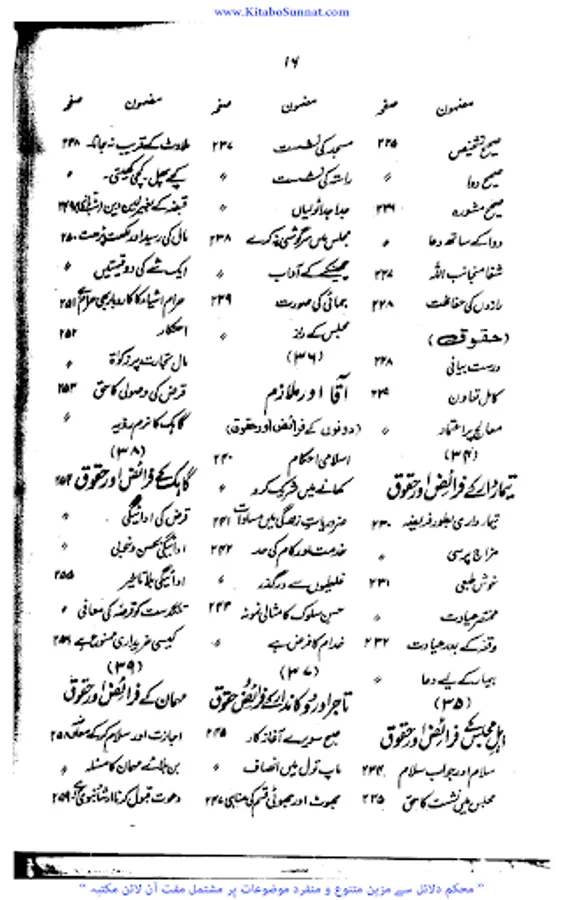 www.KitaboSunnat.com
۱۶
مضمون صفحہ
صحیح تشخیص ۲۲۵
صحیح دوا 〃
صحیح مشورہ ۲۲۶
دوا کے ساتھ دعا 〃
شفا منجانب اللہ ۲۲۷
رازوں کی حفاظت ۲۲۸
(حقوق)
درست بیانی ۲۲۸
کامل تعاون ۲۲۹
معالج پر اعتماد 〃
(۳۴)
تیماردار کے فرائض اور حقوق
تیمارداری بطور فریضہ ۲۳۰
مزاج پرسی 〃
خوش طبعی ۲۳۱
مختصر عیادت 〃
وقفہ کے بعد عیادت ۲۳۲
بیمار کے لیے دعا 〃
(۳۵)
اہل مجلس کے فرائض اور حقوق
سلام اور جواب سلام ۲۳۴
مجلس میں نشست کا حق ۲۳۵
مضمون صفحہ
مسجد کی نشست ۲۳۷
راستہ کی نشست 〃
جدا جدا ٹولیاں 〃
مجلس میں سرگوشی نہ کرے ۲۳۸
چھینکنے کے آداب 〃
جمائی کی صورت ۲۳۹
مجلس کے راز 〃
(۳۶)
آقا اور ملازم
(دونوں کے فرائض اور حقوق)
اسلامی احکام ۲۴۰
کھانے میں شریک کرو 〃
ضروریات زندگی میں مساوات ۲۴۱
خدمت اور کام کی حد ۲۴۲
غلطیوں سے درگذر 〃
حسن سلوک کا مثالی نمونہ ۲۴۳
خدام کا فرض ہے 〃
(۳۷)
تاجر اور دوکاندار کے فرائض و حقوق
صبح سویرے آغاز کار ۲۴۵
ماپ تول میں انصاف 〃
جھوٹ اور جھوٹی قسم کی مناہی ۲۴۷
مضمون صفحہ
ملاوٹ کے قریب نہ جانا ۲۴۸
کچے پھل۔ کچی کھیتی۔ 〃
قبضہ کے بغیر لین دین ۲۴۹
مال کی رسید اور ۲۵۰
ایک شے کی دو قیمتیں 〃
حرام اشیاء کا کاروبار بھی حرام ہے ۲۵۱
احتکار ۲۵۲
مال تجارت پر زکوٰۃ 〃
قرض کی وصولی کا حق ۲۵۳
گاہک کا نرم رویہ 〃
(۳۸)
گاہک کے فرائض اور حقوق ۲۵۴
قرض کی ادائیگی 〃
ادائیگی بحسن و خوبی 〃
ادائیگی بلا تاخیر ۲۵۵
تنگدست کو قرضہ کی معافی 〃
کیسی خریداری ممنوع ہے ۲۵۶
(۳۹)
مہمان کے فرائض اور حقوق
اجازت اور سلام کر کے ۲۵۸
بن بلائے مہمان کا مسئلہ 〃
دعوت قبول کرنا ارشاد نبوی ہے ۲۵۹
" محکم دلائل سے مزین متنوع و منفرد موضوعات پر مشتمل مفت آن لائن مکتبہ "